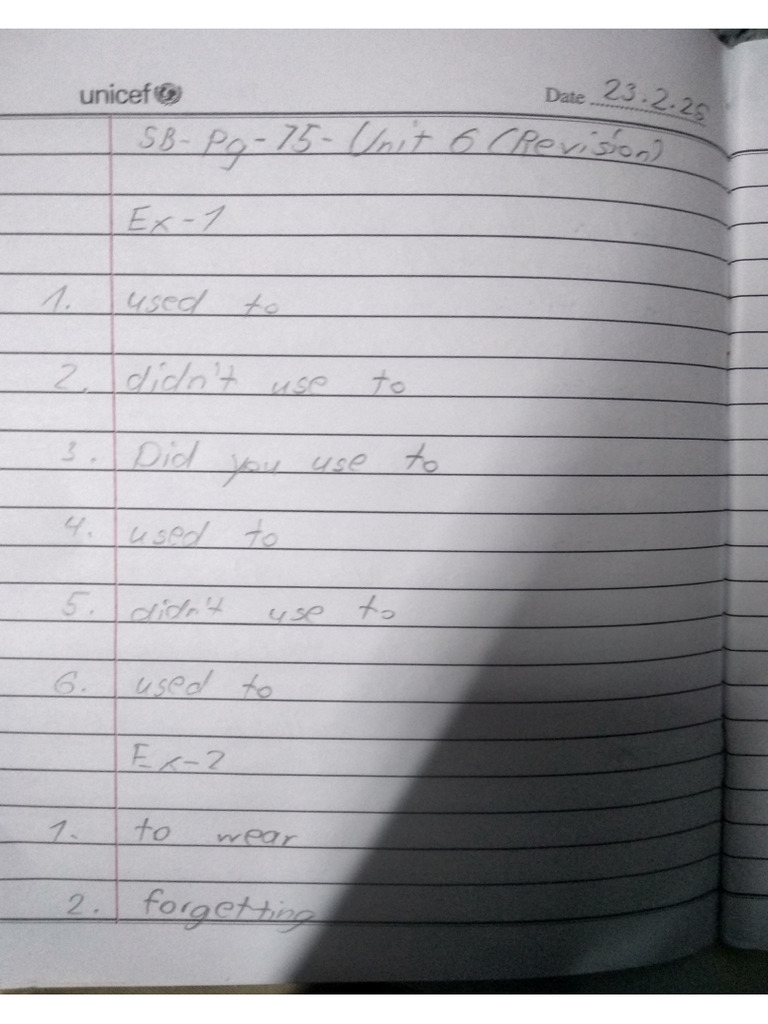 unicef
Date 23.2.25
SB- Pg-75- Unit 6 (Revision)
Ex-1
1. used to
2. didn't use to
3. Did you use to
4. used to
5. didn't use to
6. used to
Ex-2
1. to wear
2. forgetting